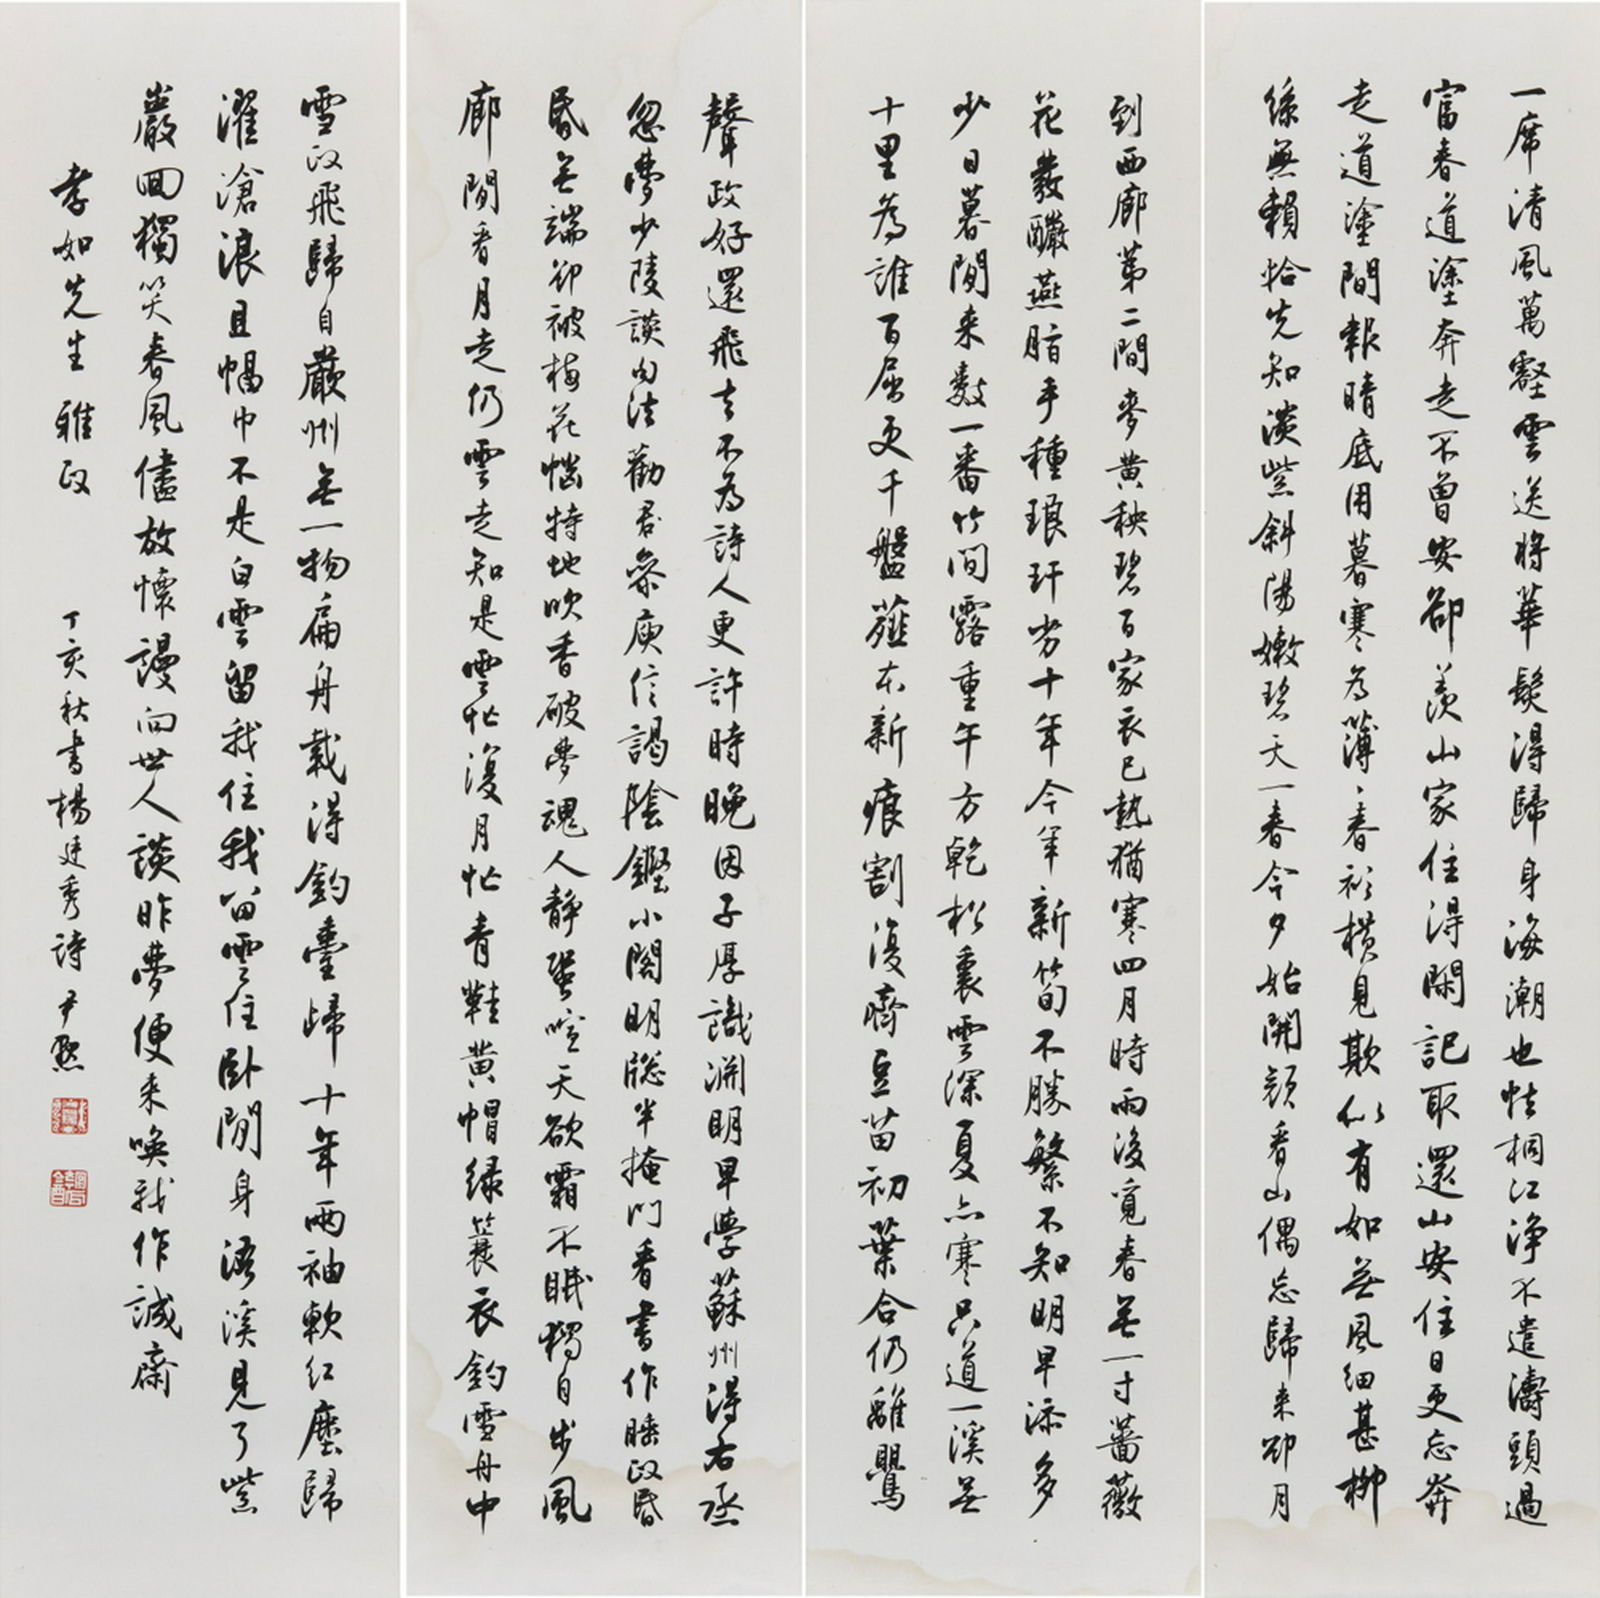 一席清風萬壑雲送將華髮得歸身海潮也怯桐江淨不遣濤頭過
富春道塗奔走不曾安卻羨山家住得閑記取還山安住日更忘奔
走道塗間報晴底用暮寒為薄薄春衫橫見欺似有如無風細甚柳
絲無賴拾先知淡紫斜陽嫩碧天一春今夕始開顏看山偶忘歸來卻月
到西廊第二間麥黃秧碧百家衣已熱猶寒四月時雨後覓春無一寸薔薇
花發釅燕脂手種琅玕劣十年今年新筍不勝繁不知明早添多
少日暮閒來數一番竹間露重午方乾松裏雲深夏亦寒只道一溪無
十里為誰百屈更千盤薤本新痕割復齊豆苗初葉合仍離鸎
聲政好還飛去不為詩人更許時晚因子厚識淵明早學蘇州得右丞
忽夢少陵談句法勸君參庾信謁陰鏗小閣明牕半掩門看書作睡政昏
昏無端卻被梅花惱特地吹香破夢魂人靜蛩喧天欲霜不眠獨自步風
廊閒看月走仍雲走知是雲忙復月忙青鞋黃帽綠蓑衣釣雪舟中
雪政飛歸自嚴州無一物扁舟載得釣臺歸十年兩袖軟紅塵歸
濯滄浪且幅巾不是白雲留我住我留雲住臥閒身浯溪見了紫
巖回獨笑春風儘放懷謾向世人談昨夢便來喚我作誠齋
孝如先生雅政
丁亥秋書楊廷秀詩 尹默